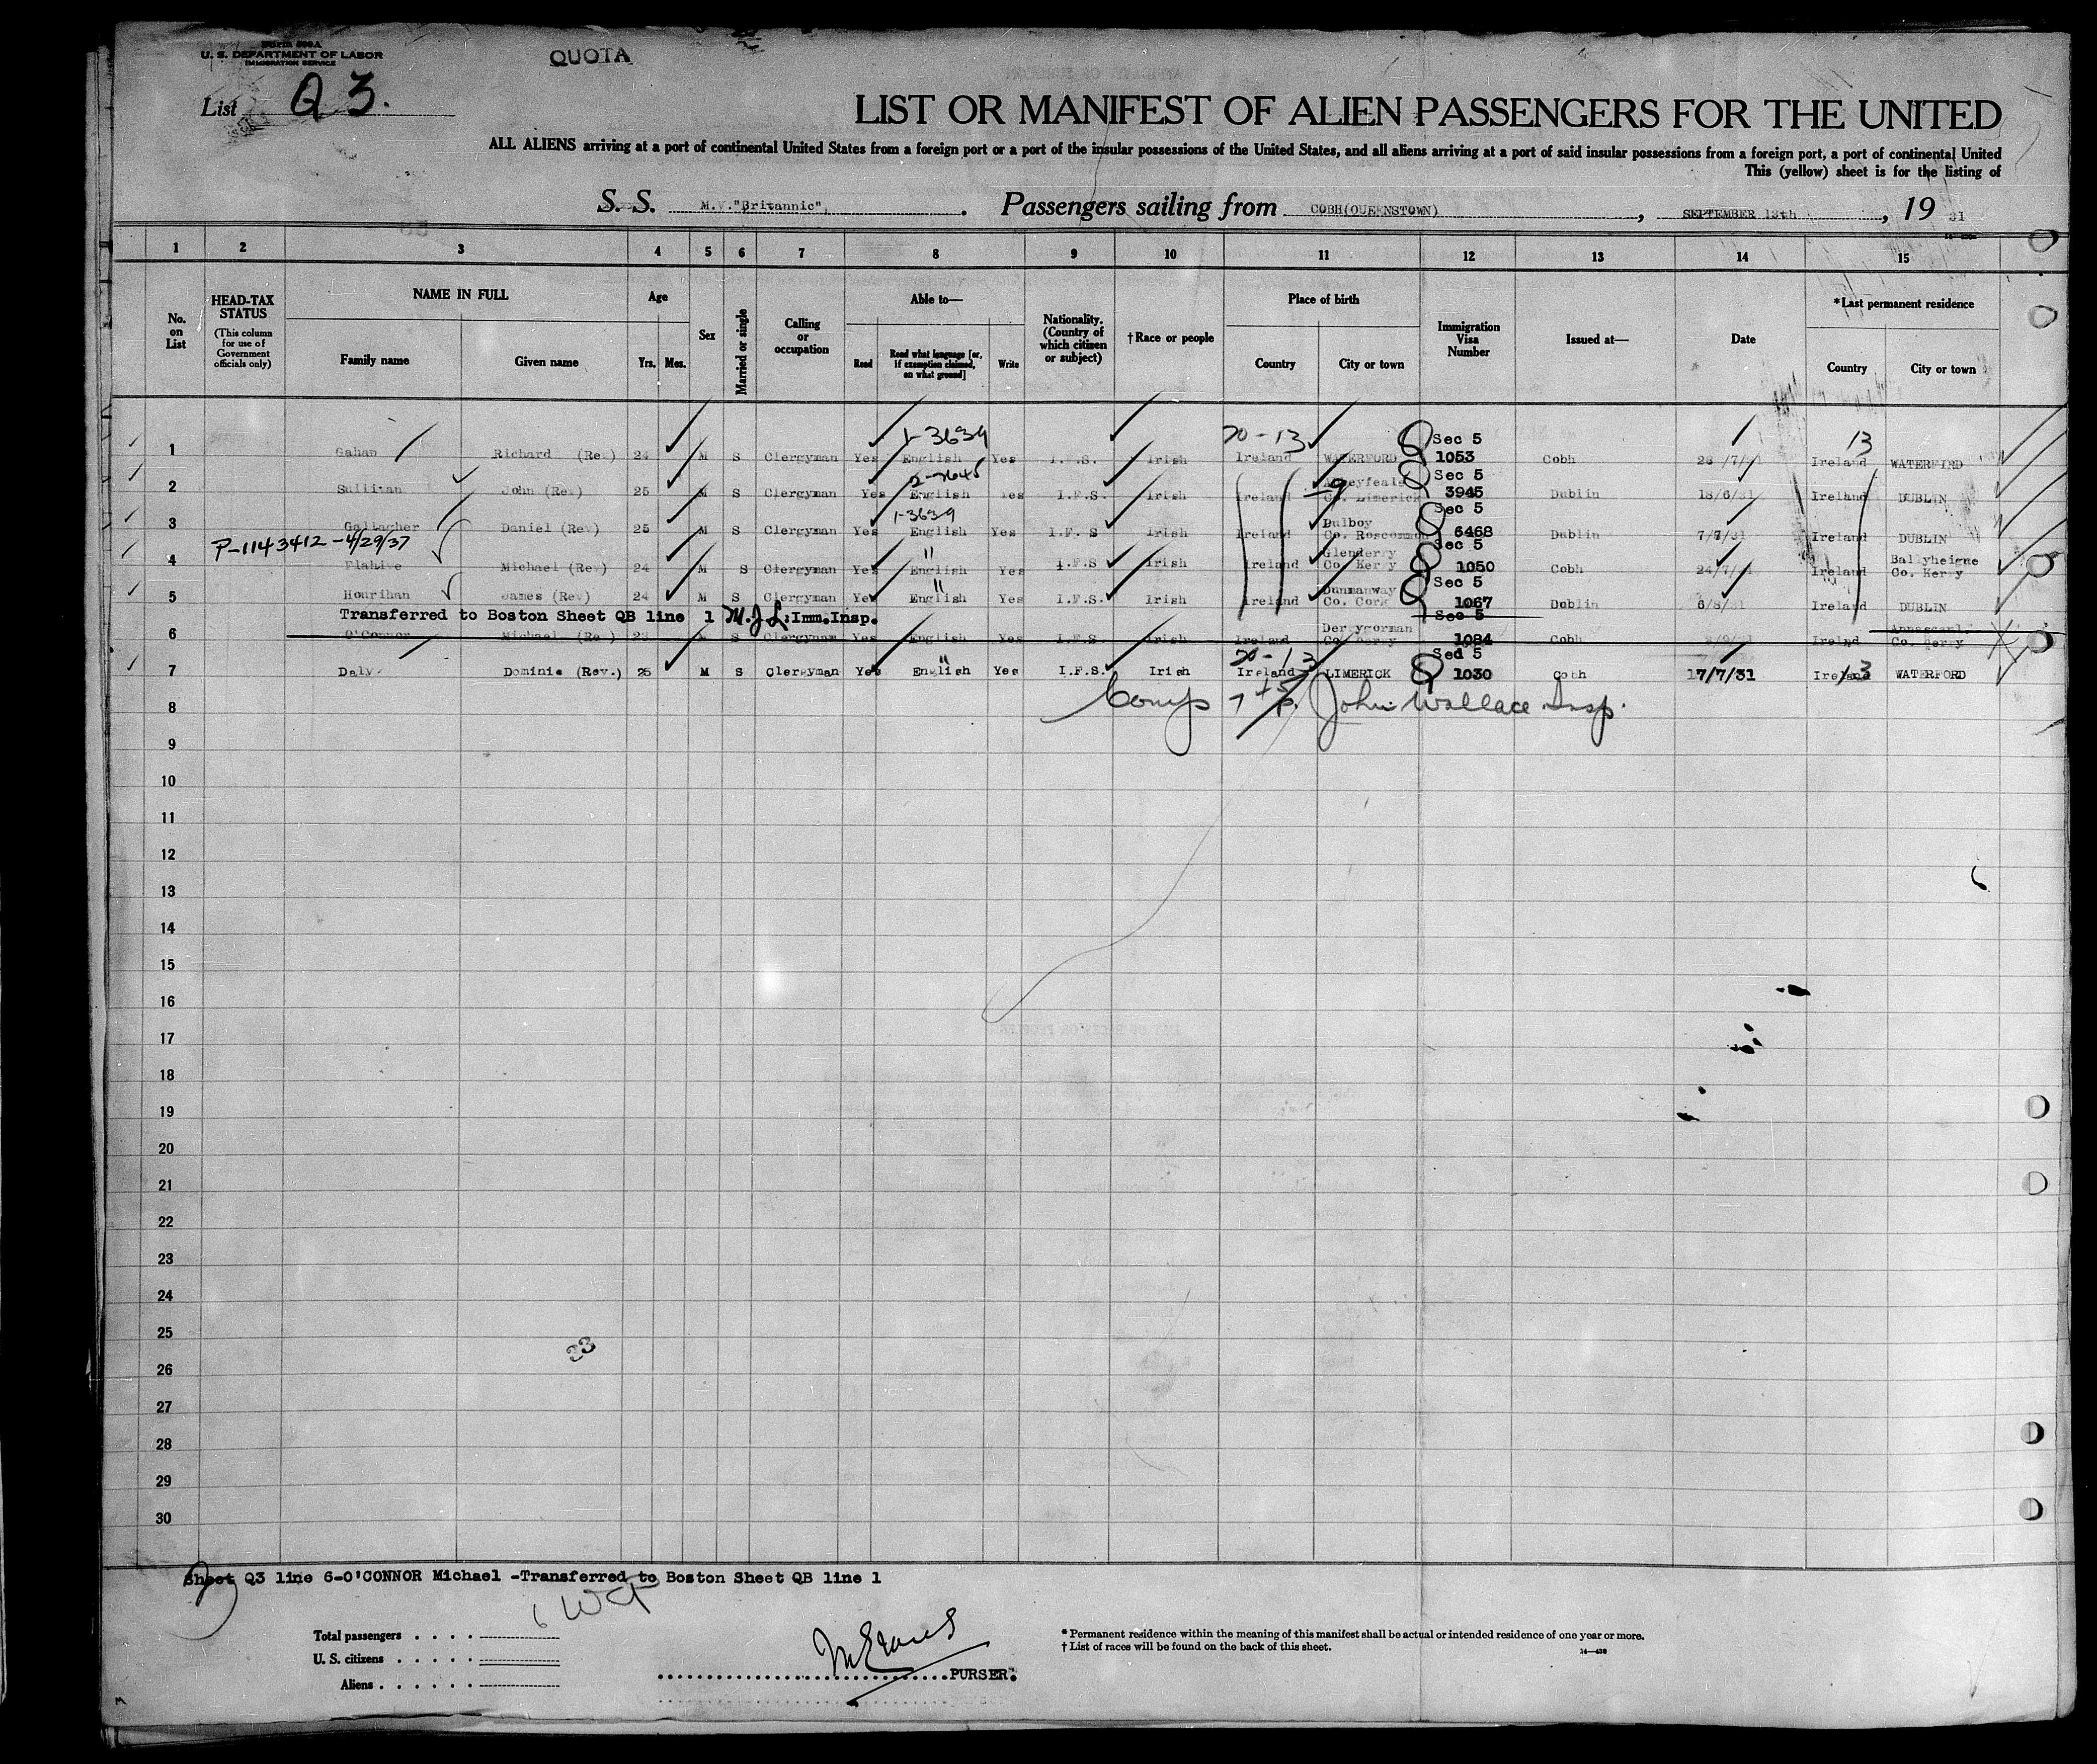 Form 500A
U. S. DEPARTMENT OF LABOR
IMMIGRATION SERVICE
QUOTA
List Q 3.
LIST OR MANIFEST OF ALIEN PASSENGERS FOR THE UNITED
ALL ALIENS arriving at a port of continental United States from a foreign port or a port of the insular possessions of the United States, and all aliens arriving at a port of said insular possessions from a foreign port, a port of continental United
This (yellow) sheet is for the listing of
S. S. M.V."Britannic", . Passengers sailing from COBH(QUEENSTOWN) , SEPTEMBER 13th , 19 31
1 2 3 4 5 6 7 8 9 10 11 12 13 14 15
No. on List
HEAD-TAX STATUS (This column for use of Government officials only)
NAME IN FULL
Family name Given name
Age
Yrs. Mos.
Sex
Married or single
Calling or occupation
Able to—
Read Read what language [or, if exemption claimed, on what ground] Write
Nationality. (Country of which citizen or subject)
†Race or people
Place of birth
Country City or town
Immigration Visa Number
Issued at—
Date
*Last permanent residence
Country City or town
1-3639 20-13 Sec 5 13
1 Gahan Richard (Rev) 24 M S Clergyman Yes English Yes I.F.S. Irish Ireland WATERFORD Q 1053 Cobh 28/7/31 Ireland WATERFIRD
2-7645 Sec 5
2 Sullivan John (Rev) 25 M S Clergyman Yes English Yes I.F.S. Irish Ireland Abbeyfeale Co. Limerick Q 3945 Dublin 18/6/31 Ireland DUBLIN
1-3639 Sec 5
3 Gallagher Daniel (Rev) 25 M S Clergyman Yes English Yes I.F.S Irish Ireland Co. Roscommon Q 6468 Dublin 7/7/31 Ireland DUBLIN
P-1143412-4/29/37 " Sec 5
4 Flahive Michael (Rev) 24 M S Clergyman Yes English Yes I.F.S Irish Ireland Glenderry Co. Kerry Q 1050 Cobh 24/7/31 Ireland Ballyheigue Co. Kerry
" Sec 5
5 Hourihan James (Rev) 24 M S Clergyman Yes English Yes I.F.S. Irish Ireland Dunmanway Co. Cork Q 1067 Dublin 6/8/31 Ireland DUBLIN
Transferred to Boston Sheet QB line 1 M.J.L.:Imm.Insp. Sec 5
6 O'Connor Michael (Rev) S Clergyman Yes English Yes I.F.S Irish Ireland Derrygorman Co. Kerry 1084 Cobh Annascaul Co. Kerry
" 20-13 Sec 5
7 Daly Dominic (Rev.) 25 M S Clergyman Yes English Yes I.F.S. Irish Ireland LIMERICK Q 1030 Cobh 17/7/31 Ireland 13 WATERFORD
John Wallace Insp.
8
9
10
11
12
13
14
15
16
17
18
19
20
21
22
23
24
25
33
26
27
28
29
30
Sheet Q3 line 6-O'CONNOR Michael -Transferred to Boston Sheet QB line 1
Total passengers
U. S. citizens
Aliens
PURSER.
* Permanent residence within the meaning of this manifest shall be actual or intended residence of one year or more.
† List of races will be found on the back of this sheet.